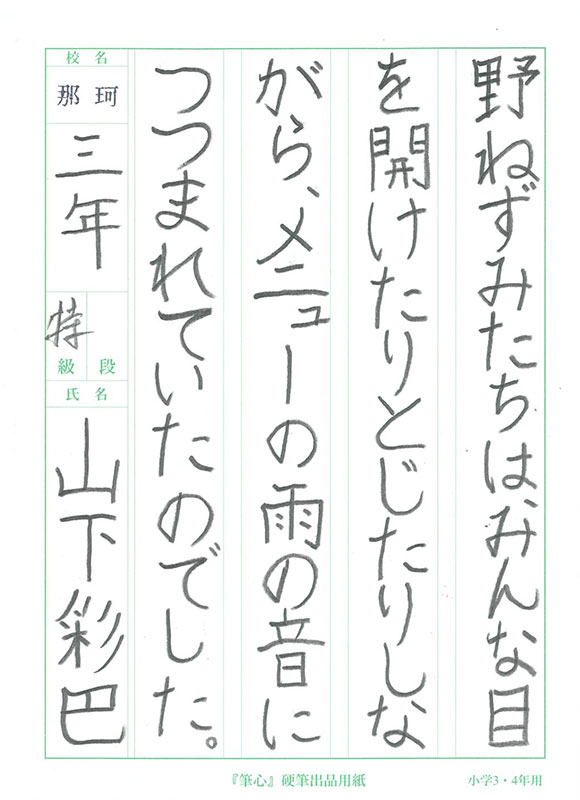 野ねずみたちは、みんな目
を開けたりとじたりしな
がら、メニューの雨の音に
つつまれていたのでした。
校名
那珂
三年
特
級 段
氏名
山下彩巴
『筆心』硬筆出品用紙
小学3・4年用